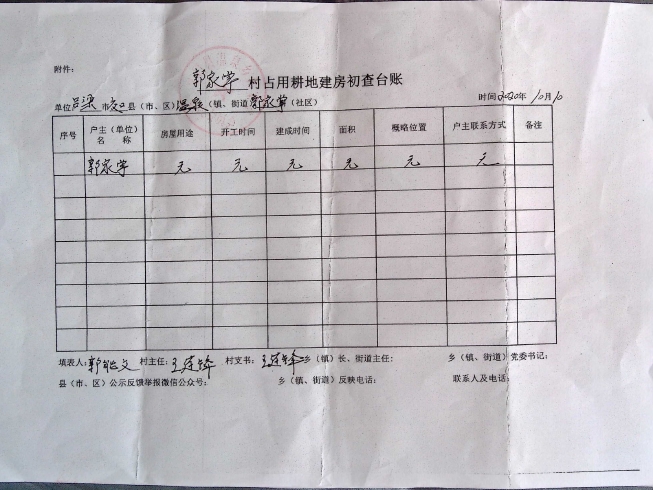 附件：
郭家掌 村占用耕地建房初查台账
单位 吕梁 市 交口 县（市、区） 温泉 （镇、街道） 郭家掌 （社区） 时间 2020年 10月10
序号 户主（单位）名 称 房屋用途 开工时间 建成时间 面积 概略位置 户主联系方式 备注
郭家掌 无 无 无 无 无 无
填表人： 村主任： 王连锋 村支书： 王连锋 乡（镇）长、街道主任： 乡（镇、街道）党委书记：
县（市、区）公示反馈举报微信公众号： 乡（镇、街道）反映电话： 联系人及电话：